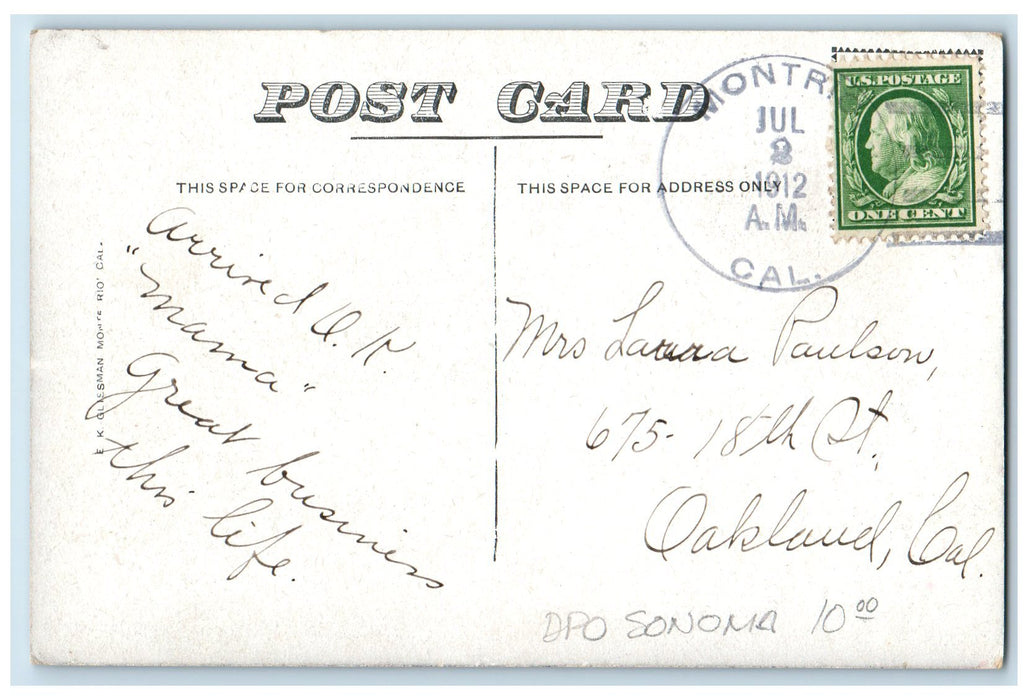 POST CARD
THIS SPACE FOR CORRESPONDENCE
THIS SPACE FOR ADDRESS ONLY
MONTR
JUL
2
1912
A.M.
CAL.
U.S. POSTAGE
ONE CENT
E. K. GLESSMAN MONTE RIO' CAL.
Arrived O. K.
"Mama"
Great business
this life.
Mrs Laura Paulson,
675-18th St.,
Oakland, Cal.
DPO SONOMA 10 00